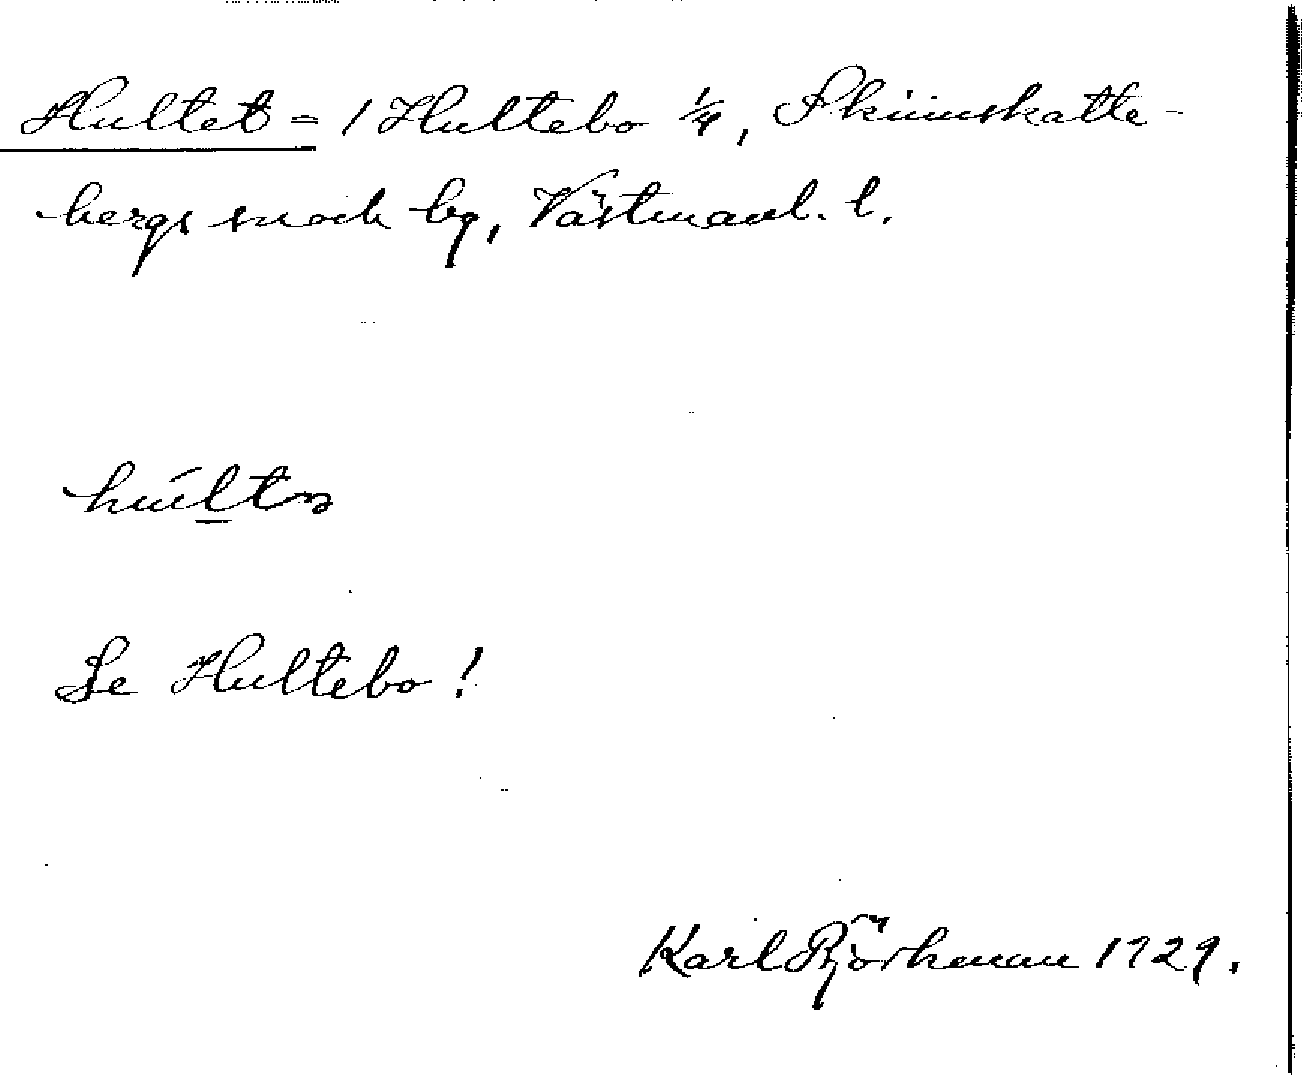 Hultet = / Hultebo 1/4, Skinnskatte-
bergs sn och bg, Västmanl. l.
húltɜ
Se Hultebo!
Karl Björkman 1929.